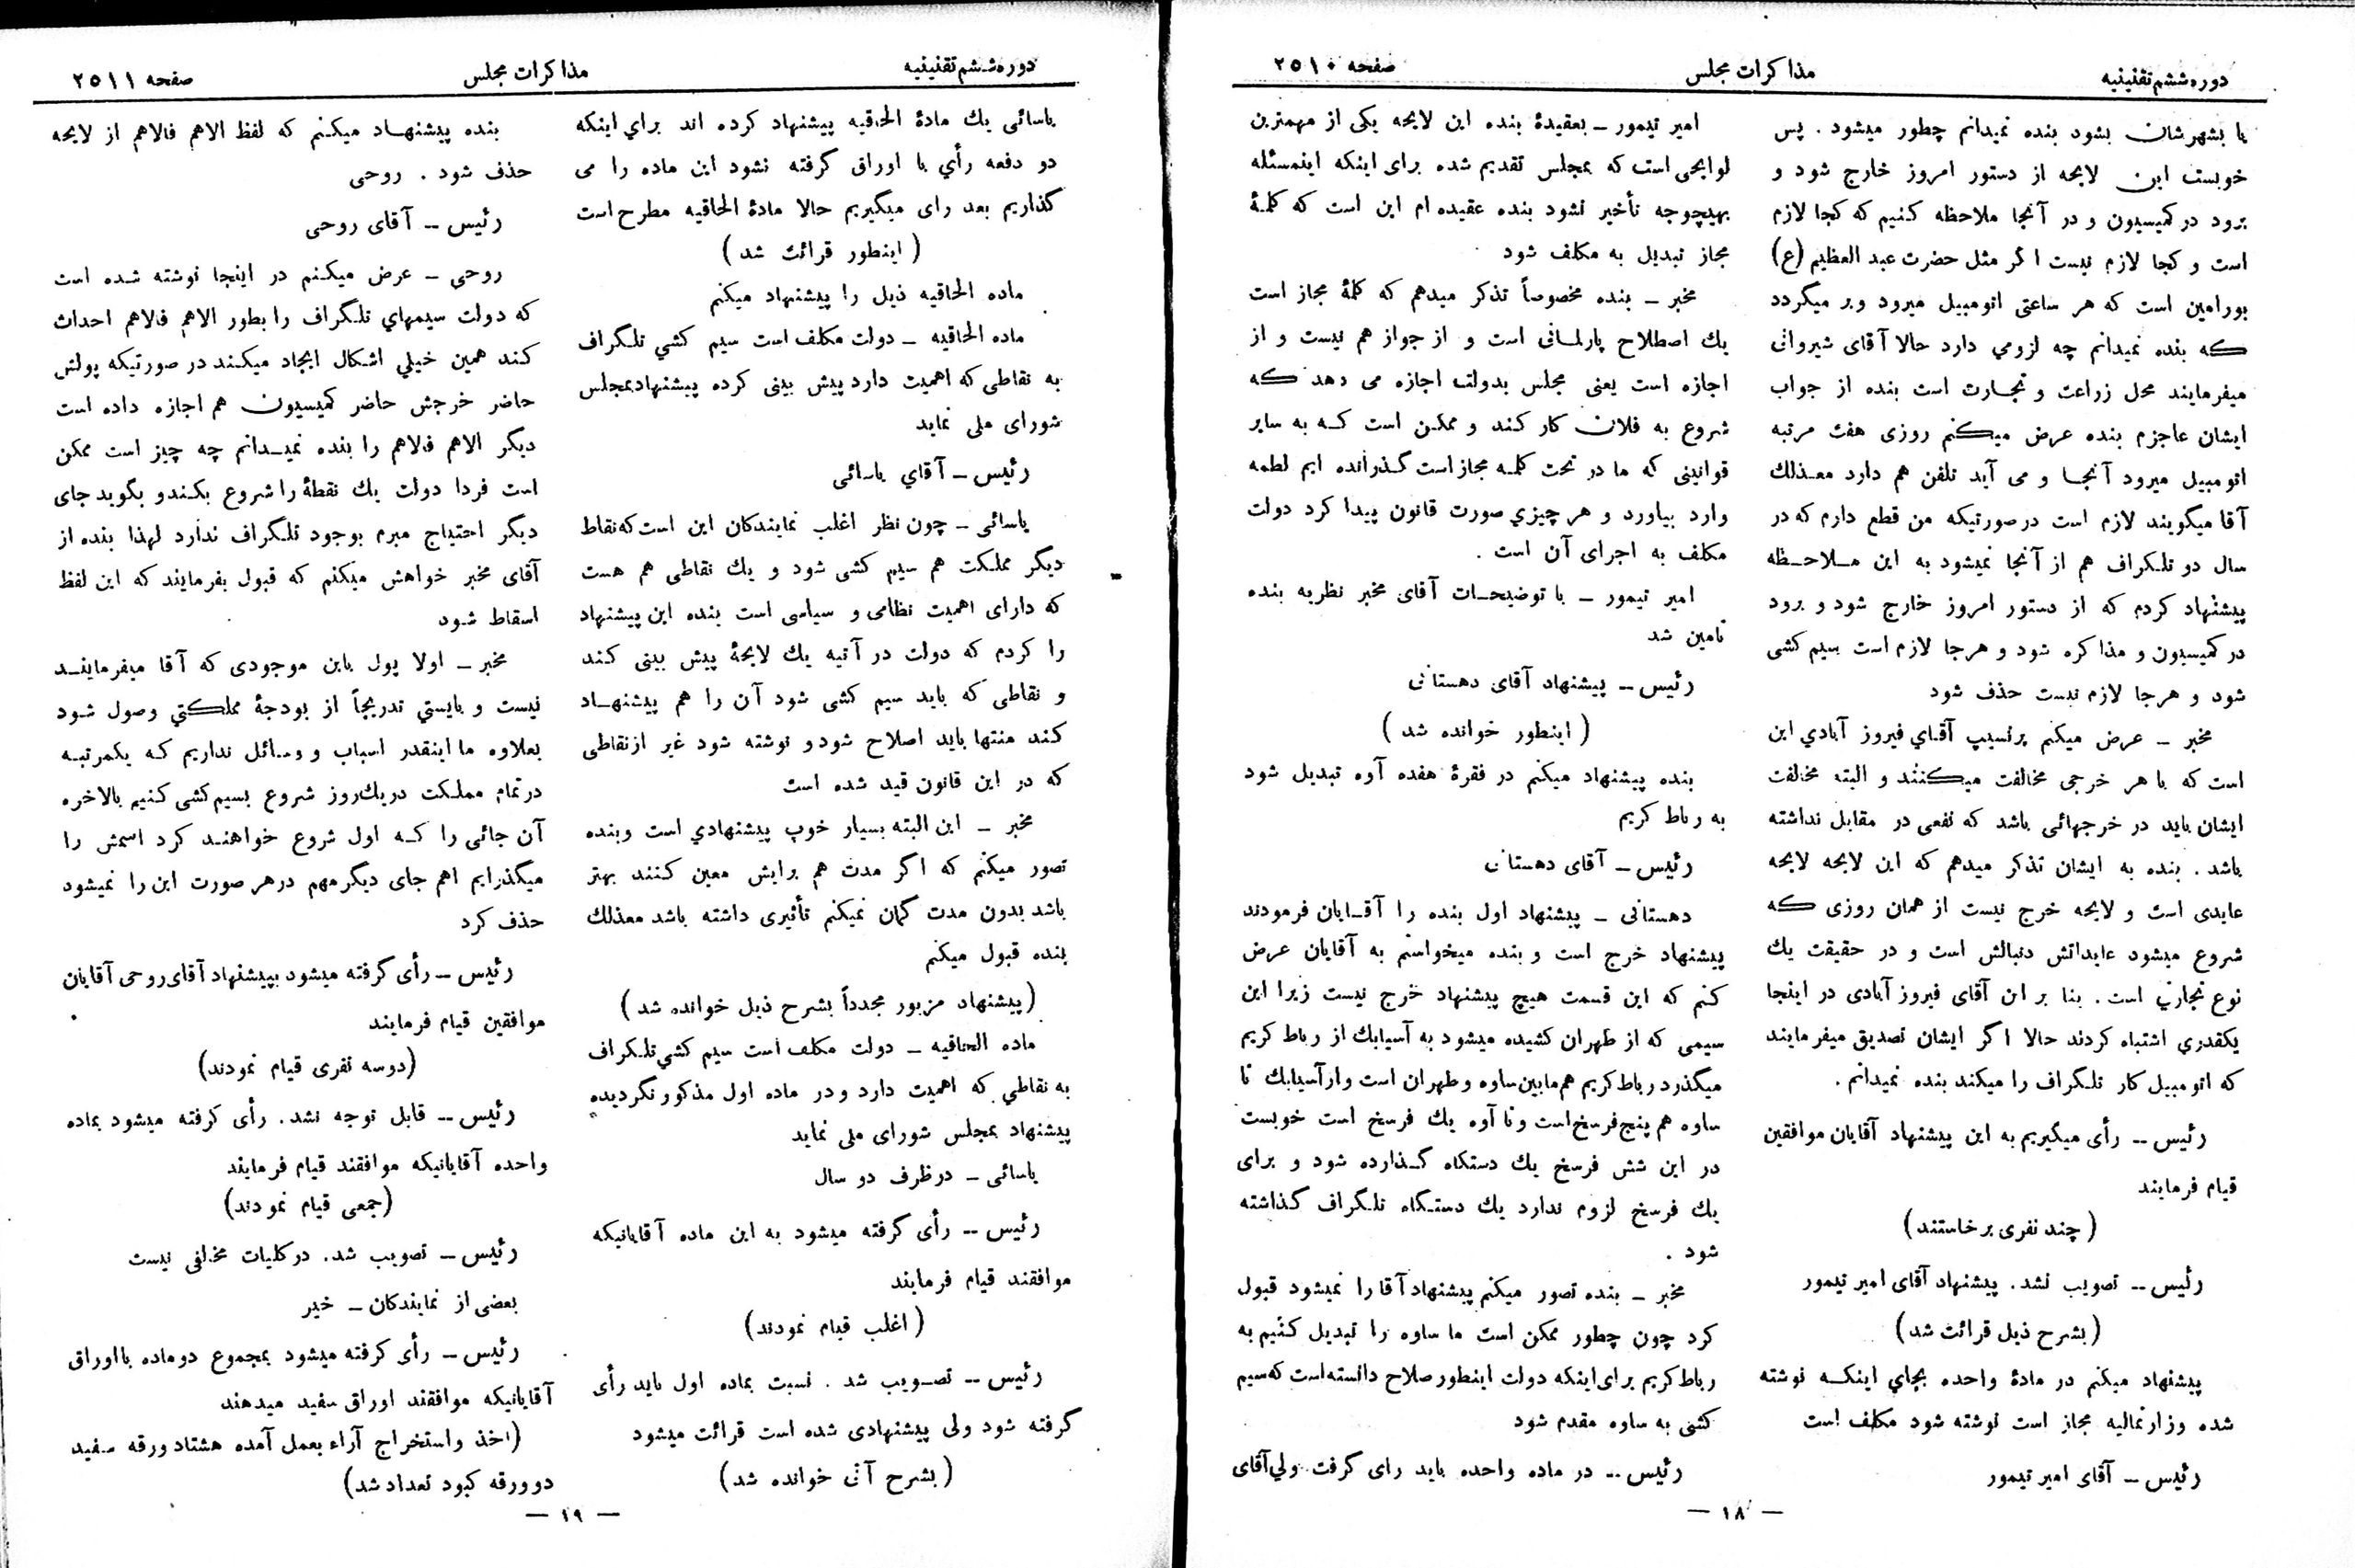 دوره ششم تقنینیه
مذاکرات مجلس
صفحه ۲۵۱۰
یا بشهرشان بشود بنده نمیدانم چطور میشود . پس
خوبست این لایحه از دستور امروز خارج شود و
برود در کمیسیون و در آنجا ملاحظه کنیم که کجا لازم
است و کجا لازم نیست اگر مثل حضرت عبد العظیم (ع)
بورامین است که هر ساعتی اتومبیل میرود و بر میگردد
که بنده نمیدانم چه لزومي دارد حالا آقای شیروانی
میفرمایند محل زراعت و تجارت است بنده از جواب
ایشان عاجزم بنده عرض میکنم روزی هفت مرتبه
اتومبیل میرود آنجا و می آید تلفن هم دارد معذلك
آقا میگویند لازم است در صورتیکه من قطع دارم که در
سال دو تلگراف هم از آنجا نمیشود به این ملاحظه
پیشنهاد کردم که از دستور امروز خارج شود و برود
در کمیسیون و مذاکره شود و هرجا لازم است سیم کشی
شود و هرجا لازم نیست حذف شود
مخبر ــ عرض میکنم پرنسیپ آقاي فیروز آبادي این
است که با هر خرجی مخالفت میکنند و البته مخالفت
ایشان باید در خرجهائی باشد که نفعی در مقابل نداشته
باشد . بنده به ایشان تذکر میدهم که این لایحه لایحه
عایدی است و لایحه خرج نیست از همان روزی که
شروع میشود عایداتش دنبالش است و در حقیقت یك
نوع تجارتي است . بنا بر این آقای فیروز آبادی در اینجا
یکقدري اشتباه کردند حالا اگر ایشان تصدیق میفرمایند
که اتومبیل کار تلگراف را میکند بنده نمیدانم .
رئیس ــ رأی میگیریم به این پیشنهاد آقایان موافقین
قیام فرمایند
( چند نفری برخاستند )
رئیس ــ تصویب نشد . پیشنهاد آقای امیر تیمور
( بشرح ذیل قرائت شد )
پیشنهاد میکنم در مادۀ واحده بجاي اینکه نوشته
شده وزارتمالیه مجاز است نوشته شود مکلف است
رئیس ــ آقای امیر تیمور
امیر تیمور ــ بعقیدۀ بنده این لایحه یکی از مهمترین
لوایحی است که بمجلس تقدیم شده برای اینکه اینمسئله
بهیچوجه تأخیر نشود بنده عقیده ام این است که کلمۀ
مجاز تبدیل به مکلف شود
مخبر ــ بنده مخصوصاً تذکر میدهم که کلمۀ مجاز است
یك اصطلاح پارلمانی است و از جواز هم نیست و از
اجازه است یعنی مجلس بدولت اجازه می دهد که
شروع به فلان کار کند و ممکن است که به سایر
قوانینی که ما در تحت کلمه مجاز است گذرانده ایم لطمه
وارد بیاورد و هر چیزي صورت قانون پیدا کرد دولت
مکلف به اجرای آن است .
امیر تیمور ــ با توضیحات آقای مخبر نظریه بنده
تأمین شد
رئیس ــ پیشنهاد آقای دهستانی
( اینطور خوانده شد )
بنده پیشنهاد میکنم در فقرۀ هفده آوه تبدیل شود
به رباط کریم
رئیس ــ آقای دهستانی
دهستانی ــ پیشنهاد اول بنده را آقایان فرمودند
پیشنهاد خرج است و بنده میخواستم به آقایان عرض
کنم که این قسمت هیچ پیشنهاد خرج نیست زیرا این
سیمی که از طهران کشیده میشود به آسیابك از رباط کریم
میگذرد رباط کریم هم مابین ساوه و طهران است و از آسیابك تا
ساوه هم پنج فرسخ است و تا آوه یك فرسخ است خوبست
در این شش فرسخ یك دستگاه گذارده شود و برای
یك فرسخ لزوم ندارد یك دستگاه تلگراف گذاشته
شود .
مخبر ــ بنده تصور میکنم پیشنهاد آقا را نمیشود قبول
کرد چون چطور ممکن است ما ساوه را تبدیل کنیم به
رباط کریم برای اینکه دولت اینطور صلاح دانسته است که سیم
کشی به ساوه مقدم شود
رئیس ــ در ماده واحده باید رای گرفت ولي آقای
ــ ۱۸ ــ
دوره ششم تقنینیه
مذاکرات مجلس
صفحه ۲۵۱۱
یاسائی یك مادۀ الحاقیه پیشنهاد کرده اند براي اینکه
دو دفعه رأي با اوراق گرفته نشود این ماده را می
گذاریم بعد رای میگیریم حالا مادۀ الحاقیه مطرح است
( اینطور قرائت شد )
ماده الحاقیه ذیل را پیشنهاد میکنم
ماده الحاقیه ــ دولت مکلف است سیم کشي تلگراف
به نقاطی که اهمیت دارد پیش بینی کرده پیشنهاد بمجلس
شورای ملی نماید
رئیس ــ آقاي یاسائی
یاسائی ــ چون نظر اغلب نمایندکان این است که نقاط
دیگر مملکت هم سیم کشی شود و یك نقاطی هم هست
که دارای اهمیت نظامی و سیاسی است بنده این پیشنهاد
را کردم که دولت در آتیه یك لایحۀ پیش بینی کند
و نقاطی که باید سیم کشی شود آن را هم پیشنهاد
کند منتها باید اصلاح شود و نوشته شود غیر از نقاطی
که در این قانون قید شده است
مخبر ــ این البته بسیار خوب پیشنهادي است و بنده
تصور میکنم که اگر مدت هم برایش معین کنند بهتر
باشد بدون مدت گمان نمیکنم تأثیری داشته باشد معذلك
بنده قبول میکنم
(پیشنهاد مزبور مجدداً بشرح ذیل خوانده شد)
ماده الحاقیه ــ دولت مکلف است سیم کشي تلگراف
به نقاطي که اهمیت دارد و در ماده اول مذکور نگردیده
پیشنهاد بمجلس شورای ملی نماید
یاسائی ــ در ظرف دو سال
رئیس ــ رأی گرفته میشود به این ماده آقایانیکه
موافقند قیام فرمایند
( اغلب قیام نمودند)
رئیس ــ تصویب شد . نسبت بماده اول باید رأی
گرفته شود ولی پیشنهادی شده است قرائت میشود
( بشرح آتی خوانده شد )
بنده پیشنهاد میکنم که لفظ الاهم فالاهم از لایحه
حذف شود . روحی
رئیس ــ آقای روحی
روحی ــ عرض میکنم در اینجا نوشته شده است
که دولت سیمهاي تلگراف را بطور الاهم فالاهم احداث
کند همین خیلي اشکال ایجاد میکند در صورتیکه پولش
حاضر خرجش حاضر کمیسیون هم اجازه داده است
دیگر الاهم فالاهم را بنده نمیدانم چه چیز است ممکن
است فردا دولت یك نقطۀ را شروع بکند و بگوید جای
دیگر احتیاج مبرم بوجود تلگراف ندارد لهذا بنده از
آقای مخبر خواهش میکنم که قبول بفرمایند که این لفظ
اسقاط شود
مخبر ــ اولا پول باین موجودی که آقا میفرمایند
نیست و بایستي تدریجاً از بودجۀ مملکتي وصول شود
بعلاوه ما اینقدر اسباب و وسائل نداریم که یکمرتبه
در تمام مملکت در یك روز شروع بسیم کشی کنیم بالاخره
آن جائی را که اول شروع خواهند کرد اسمش را
میگذرایم اهم جای دیگر مهم در هر صورت این را نمیشود
حذف کرد
رئیس ــ رأی گرفته میشود بپیشنهاد آقای روحی آقایان
موافقین قیام فرمایند
(دوسه نفری قیام نمودند)
رئیس ــ قابل توجه نشد . رأی گرفته میشود بماده
واحده آقایانیکه موافقند قیام فرمایند
(جمعی قیام نمودند)
رئیس ــ تصویب شد . در کلیات مخالفی نیست
بعضی از نمایندکان ــ خیر
رئیس ــ رأی گرفته میشود بمجموع دو ماده با اوراق
آقایانیکه موافقند اوراق سفید میدهند
(اخذ و استخراج آراء بعمل آمده هشتاد ورقه سفید
دو ورقه کبود تعداد شد)
ــ ۱۹ ــ